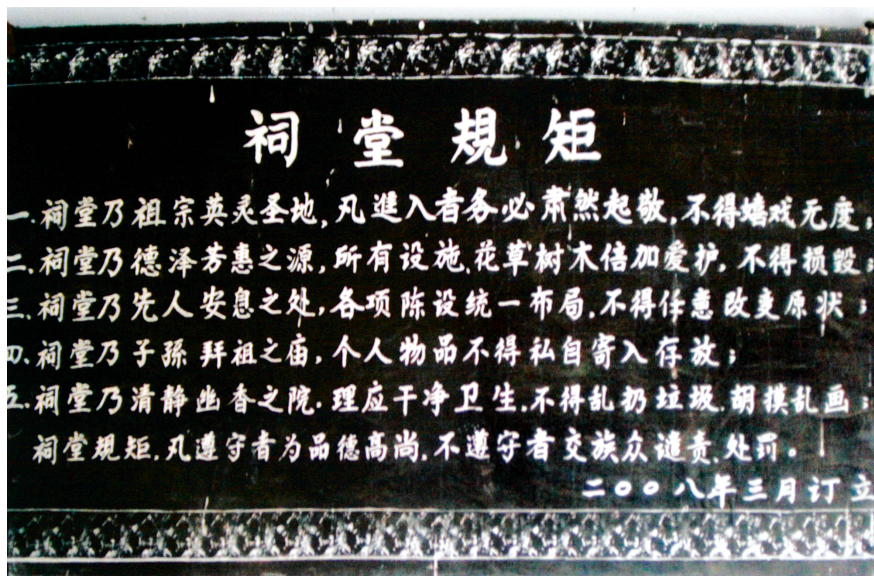 祠堂規矩
一.祠堂乃祖宗英灵圣地,凡進入者各必肃然起敬,不得嬉戏无度;
二.祠堂乃德泽芳惠之源,所有设施.花草树木倍加爱护,不得损毁;
三.祠堂乃先人安息之处,各项陈设统一布局.不得任意改变原状;
四.祠堂乃子孫拜祖之庙,个人物品不得私自寄入存放;
五.祠堂乃清静幽香之院.理应干净卫生.不得乱扔垃圾.胡摸乱画;
祠堂規矩,凡遵守者为品德高尚.不遵守者交族众谴责.处罚。
二〇〇八年三月订立